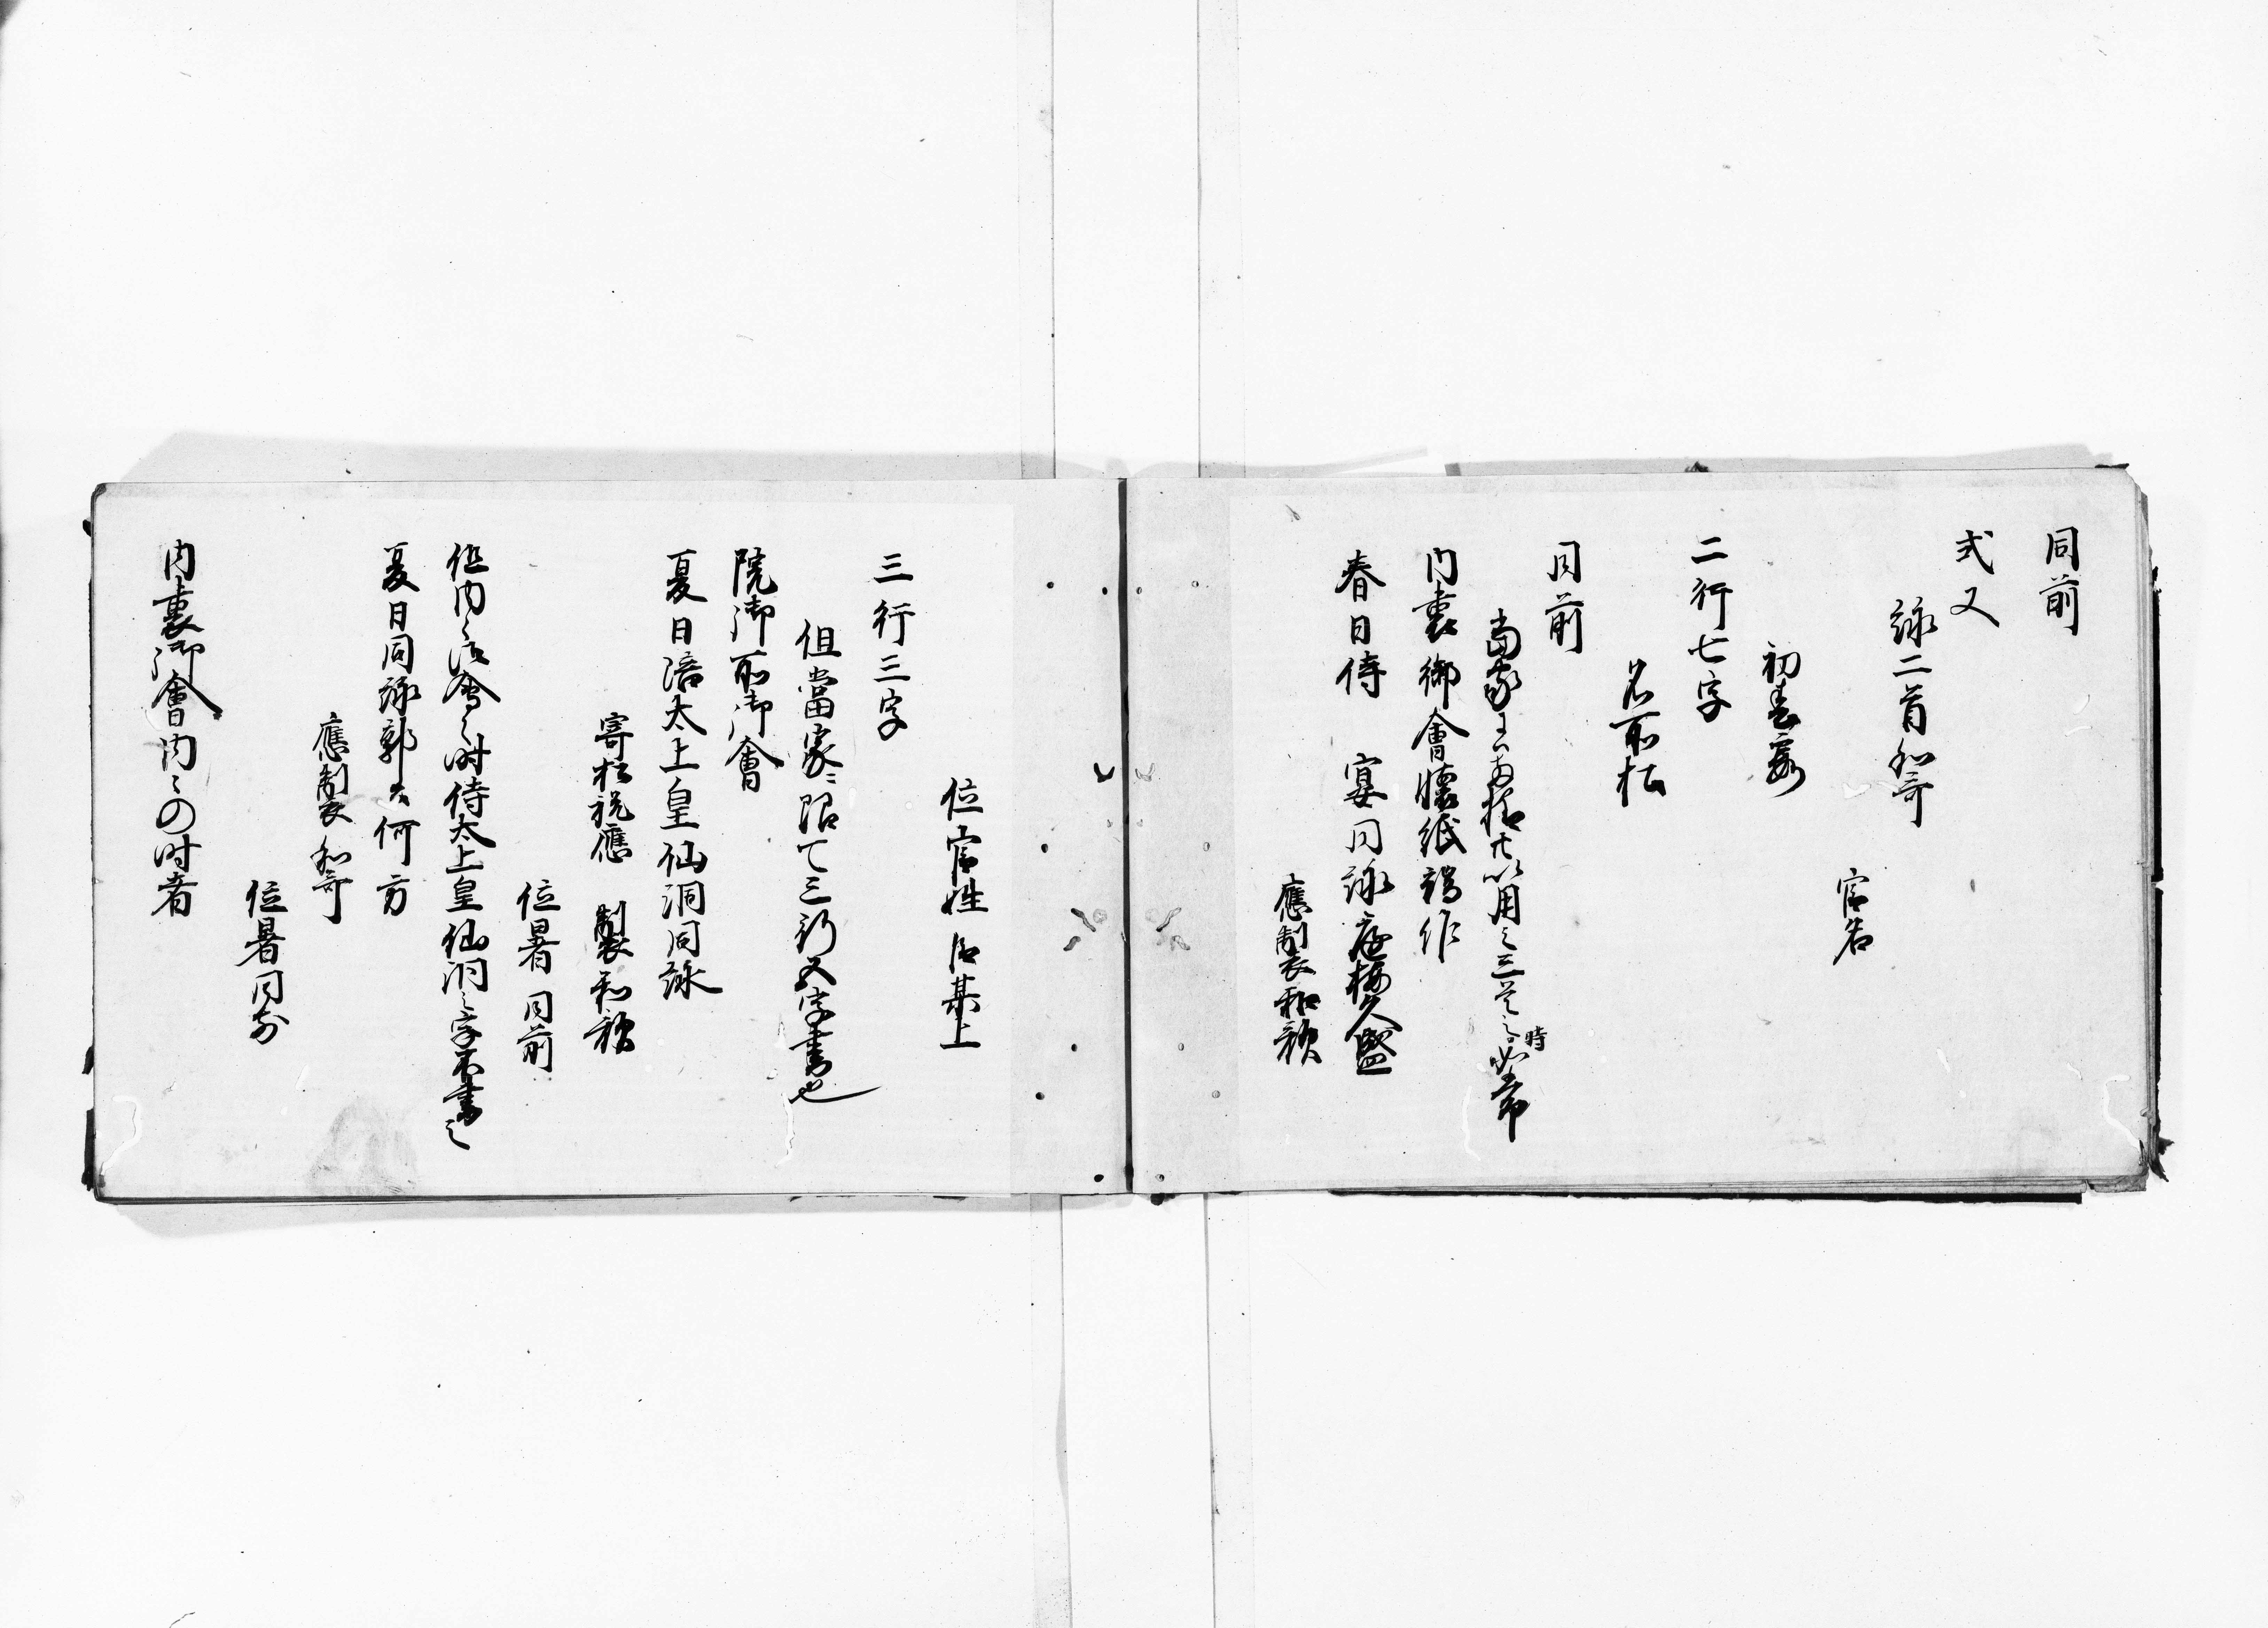 同前
式又
詠二首和哥
官名
初春霞
二行七字
名所松
同前
當家 用之三首之時如常
内裏御會懐紙端作
春日侍　宴同詠庭梅久盛
應製和歌
位官姓名某上
三行三字
但當家ニ限て三行五字書也
院御所御會
夏日陪太上皇仙洞同詠
寄松祝應　製和歌
位署同前
但内々御會之時侍太上皇仙洞之字不書之
夏日同詠郭公何方
應製和哥
位署同前
内裏御會内々の时者